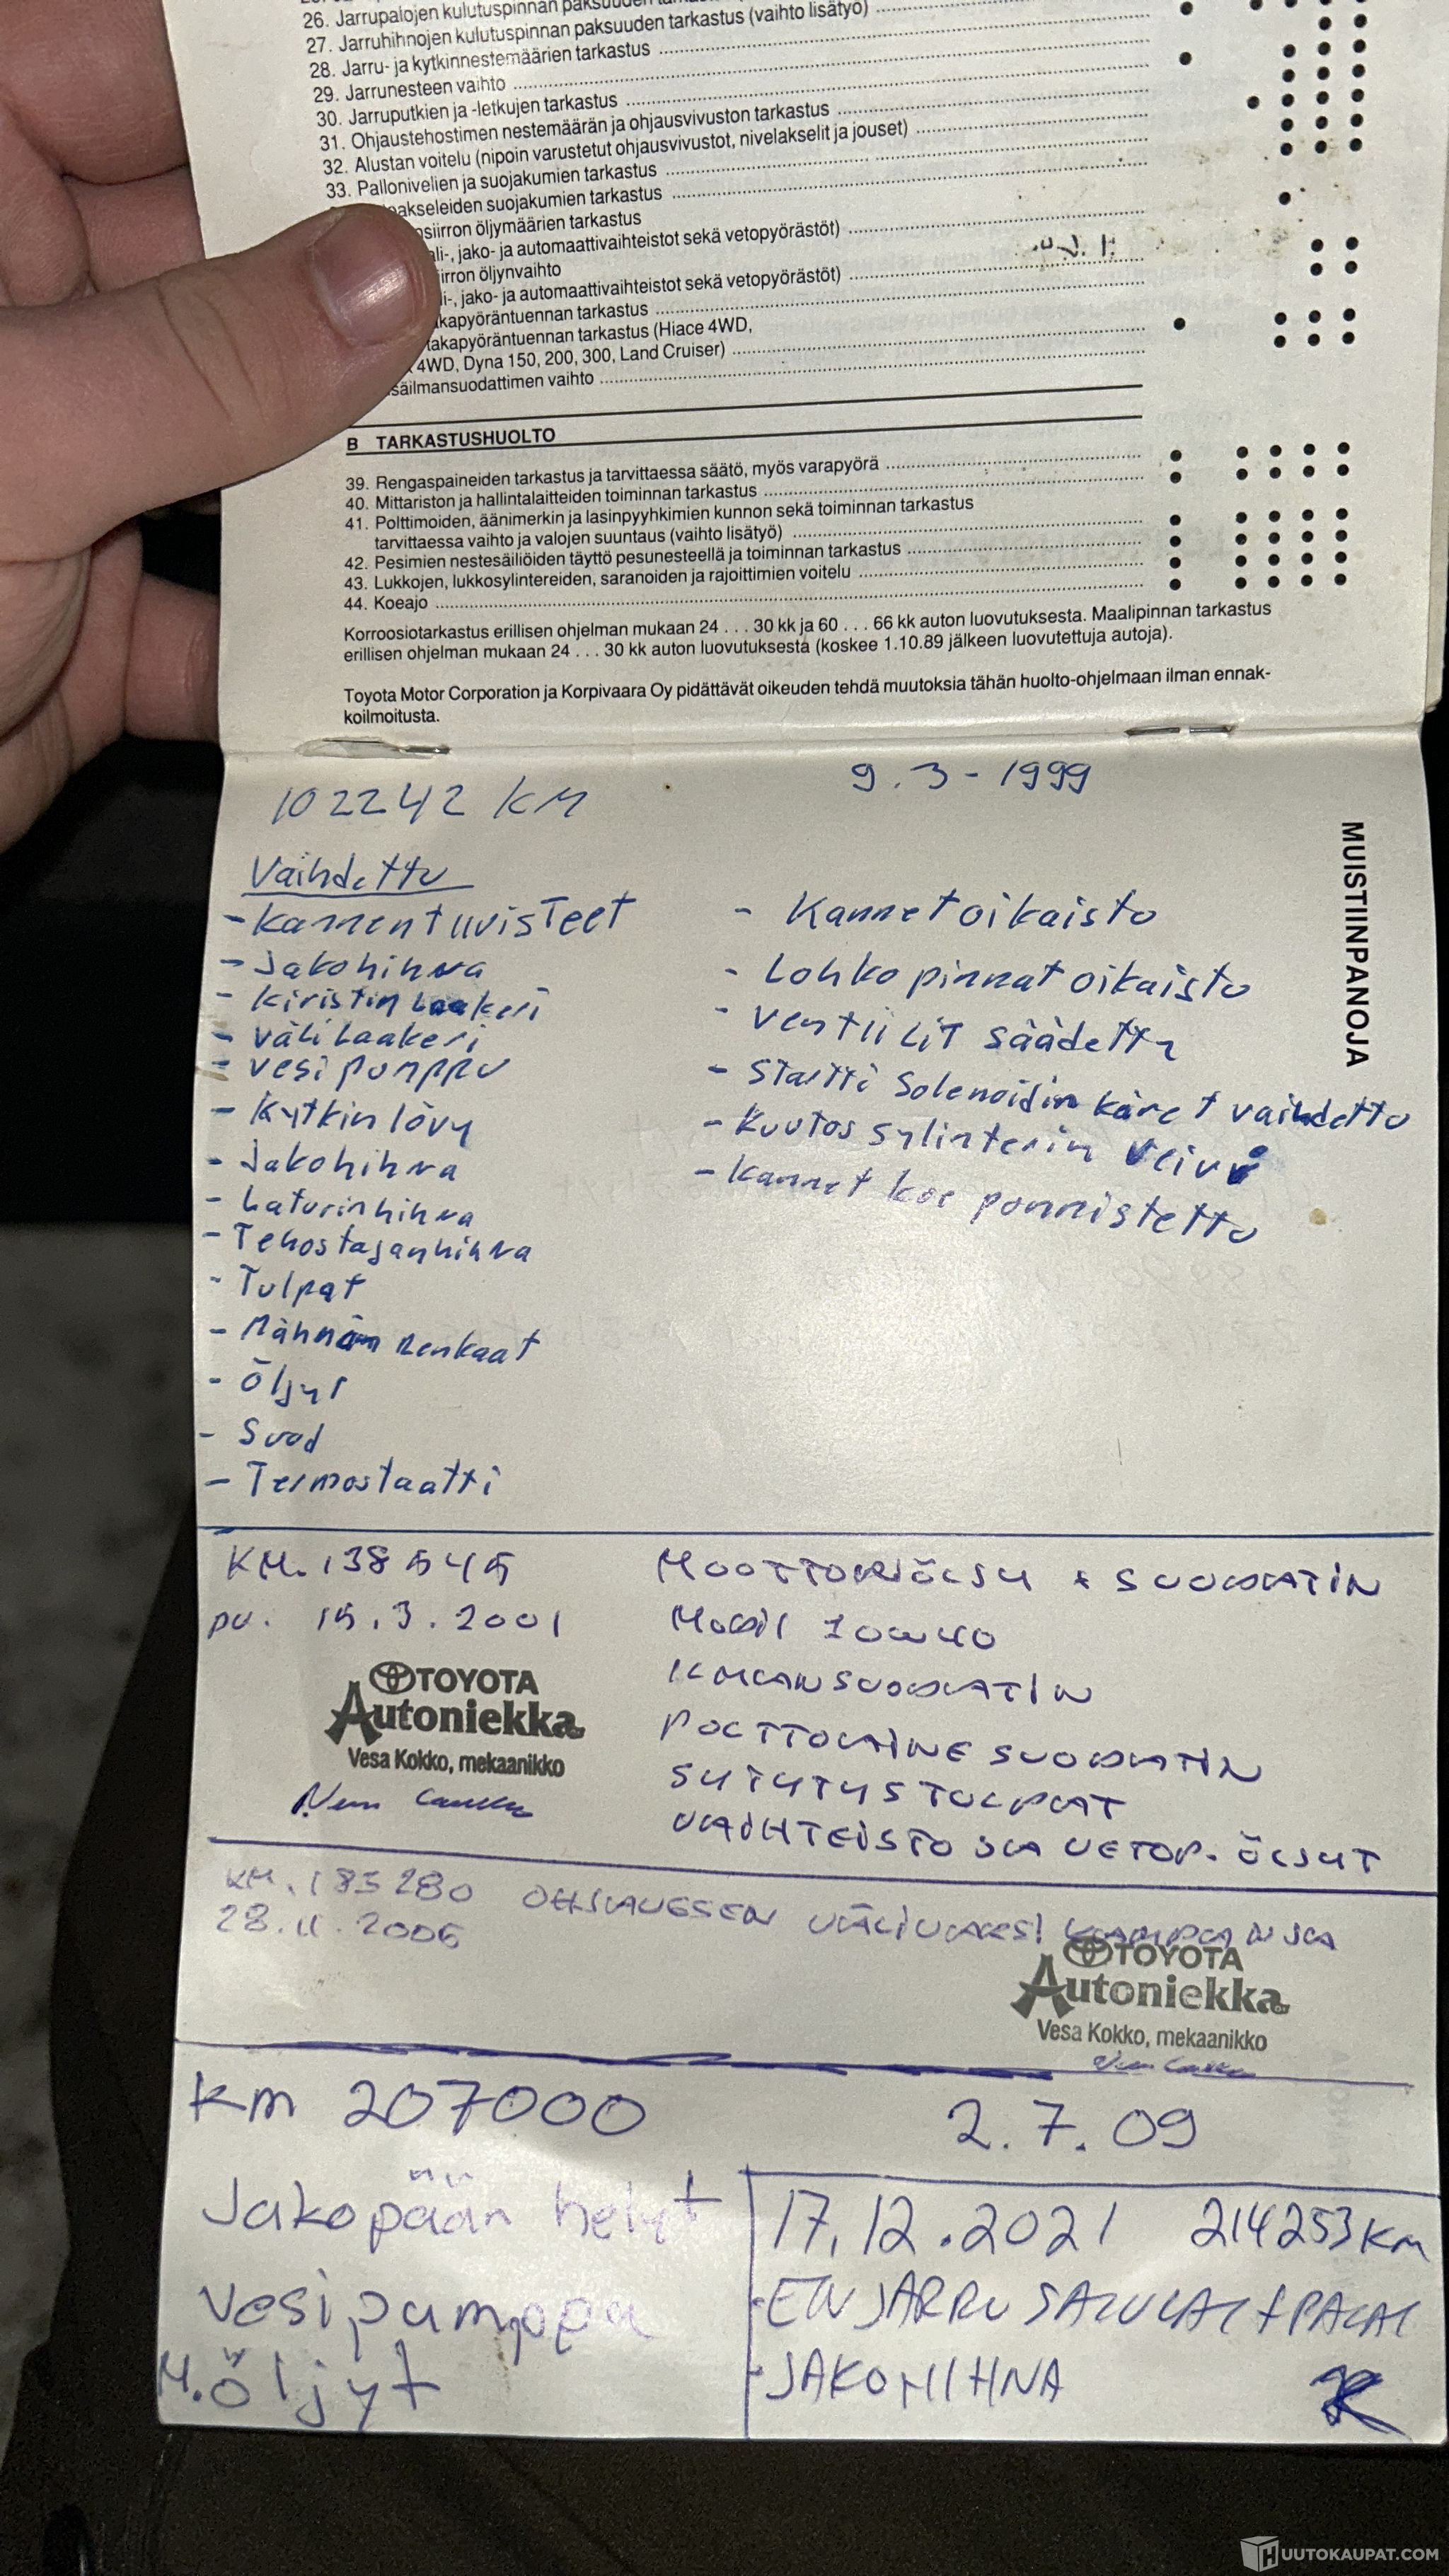 26. Jarrupalojen kulutuspinnan paksuuden
27. Jarruhihnojen kulutuspinnan paksuuden tarkastus (vaihto lisätyö)
28. Jarru- ja kytkinnestemäärien tarkastus
29. Jarrunesteen vaihto
30. Jarruputkien ja -letkujen tarkastus
31. Ohjaustehostimen nestemäärän ja ohjausvivuston tarkastus
32. Alustan voitelu (nipoin varustetut ohjausvivustot, nivelakselit ja jouset)
33. Pallonivelien ja suojakumien tarkastus
akseleiden suojakumien tarkastus
nsiirron öljymäärien tarkastus
ali-, jako- ja automaattivaihteistot sekä vetopyörästöt)
iirron öljynvaihto
li-, jako- ja automaattivaihteistot sekä vetopyörästöt)
akapyöräntuennan tarkastus
takapyöräntuennan tarkastus (Hiace 4WD,
4WD, Dyna 150, 200, 300, Land Cruiser)
säilmansuodattimen vaihto
B TARKASTUSHUOLTO
39. Rengaspaineiden tarkastus ja tarvittaessa säätö, myös varapyörä
40. Mittariston ja hallintalaitteiden toiminnan tarkastus
41. Polttimoiden, äänimerkin ja lasinpyyhkimien kunnon sekä toiminnan tarkastus
tarvittaessa vaihto ja valojen suuntaus (vaihto lisätyö)
42. Pesimien nestesäiliöiden täyttö pesunesteellä ja toiminnan tarkastus
43. Lukkojen, lukkosylintereiden, saranoiden ja rajoittimien voitelu
44. Koeajo
Korroosiotarkastus erillisen ohjelman mukaan 24 . . . 30 kk ja 60 . . . 66 kk auton luovutuksesta. Maalipinnan tarkastus
erillisen ohjelman mukaan 24 . . . 30 kk auton luovutuksesta (koskee 1.10.89 jälkeen luovutettuja autoja).
Toyota Motor Corporation ja Korpivaara Oy pidättävät oikeuden tehdä muutoksia tähän huolto-ohjelmaan ilman ennak-
koilmoitusta.
MUISTIINPANOJA
102242 KM
9.3-1999
Vaihdettu
- Kannentiivisteet
- Jakohihna
- Kiristin laakeri
- Välilaakeri
- Vesipumppu
- Kytkinlevy
- Jakohihna
- Laturinhihna
- Tehostajanhihna
- Tulpat
- Männän renkaat
- Öljyt
- Suod
- Termostaatti
- Kannet oikaistu
- Lohko pinnat oikaistu
- Ventiilit säädetty
- Startti solenoidin käret vaihdettu
- Kuutos sylinterin veivi
- Kannet koe ponnistettu
KM. 138545
pv. 15.3.2001
TOYOTA
Autoniekka
Vesa Kokko, mekaanikko
MOOTTORIÖLJY + SUODATIN
Mobil 10W40
ILMANSUODATIN
POLTTOAINESUODATIN
SYTYTYSTULPAT
VAIHTEISTO JA VETOP. ÖLJYT
KM. 185280 OHJAUKSEN VÄLIVARSI KAMPANJA
28.11.2006
TOYOTA
Autoniekka
Vesa Kokko, mekaanikko
Km 207000
2.7.09
Jakopään helyt
Vesipumppu
M.öljyt
17.12.2021 214253km
- ETUJARRU SATULAT + PALAT
- JAKOHIHNA
HUUTOKAUPAT.COM